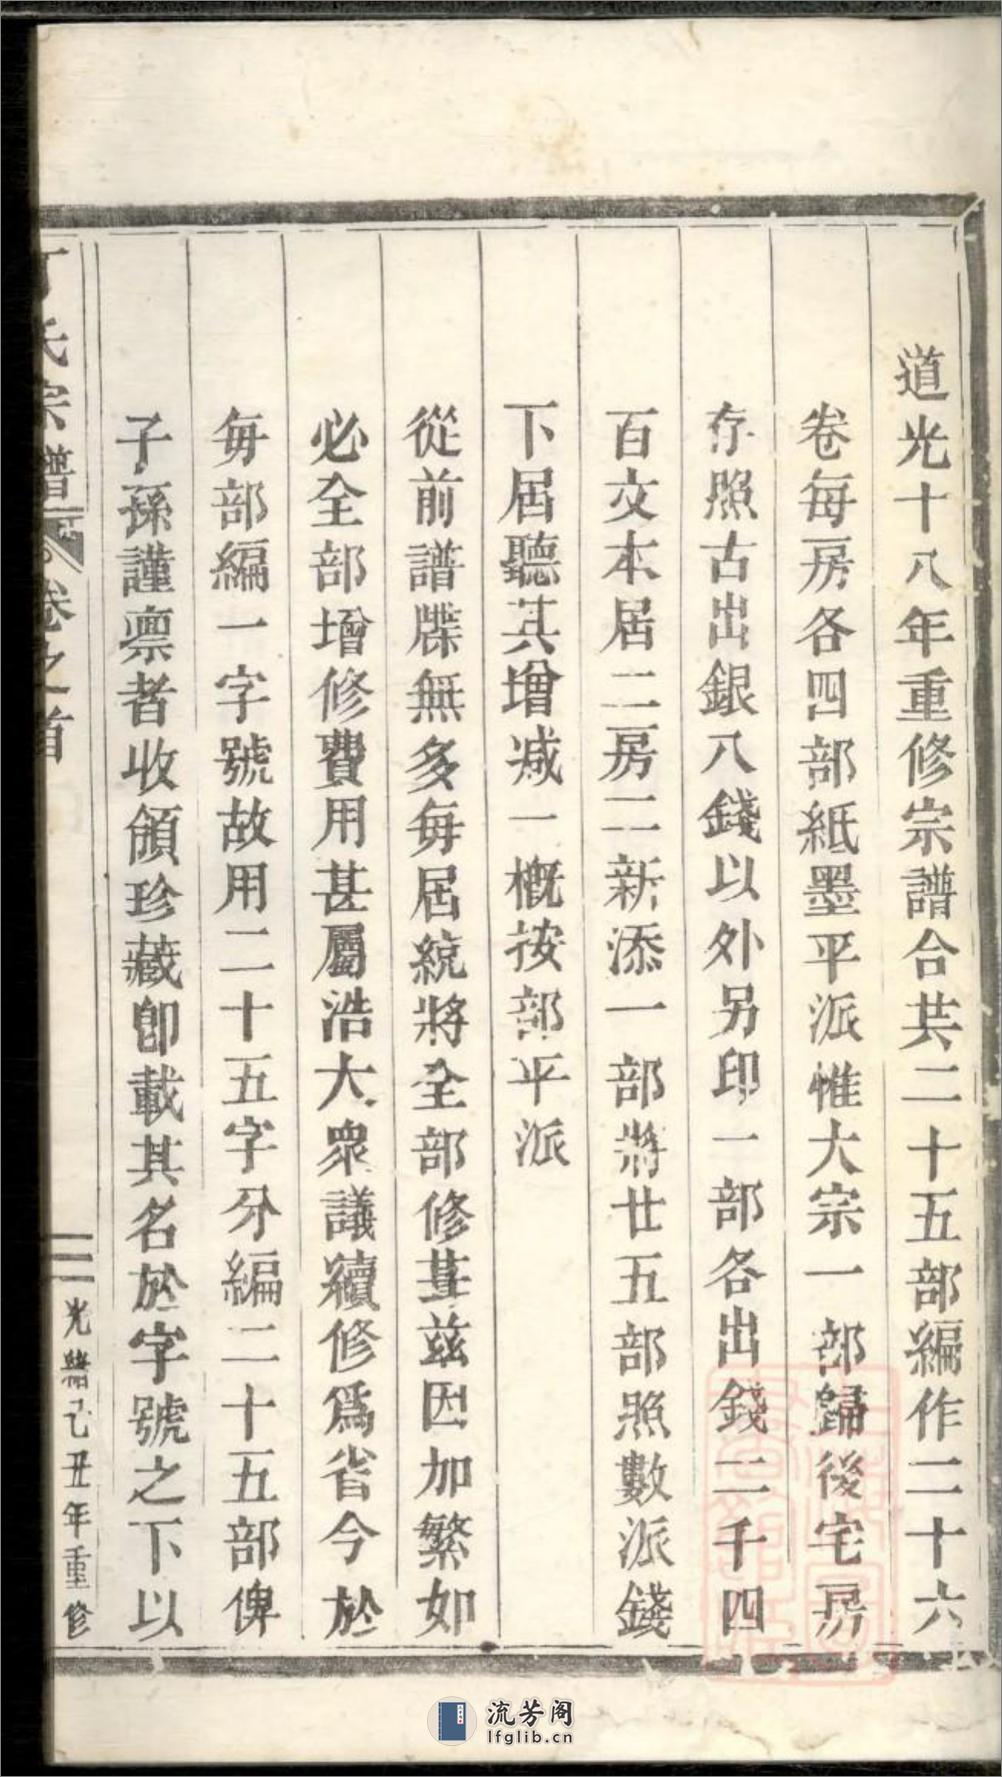 道光十八年重修宗譜合共二十五部編作二十六
卷每房各四部紙墨平派惟大宗一部歸後宅房
存照古出銀八錢以外另印一部各出錢二千四
百文本居二房二新添一部將廿五部照數派錢
下居聽其增減一概按部平派
從前譜牒無多每居統將全部修葺茲因加繁如
必全部增修費用甚屬浩大眾議續修爲省今於
每部編一字號故用二十五字分編二十五部俾
子孫謹禀者收領珍藏卽載其名於字號之下以
丁氏宗譜 卷之首 二 光緒己丑年重修
流芳阁
lfglib.cn